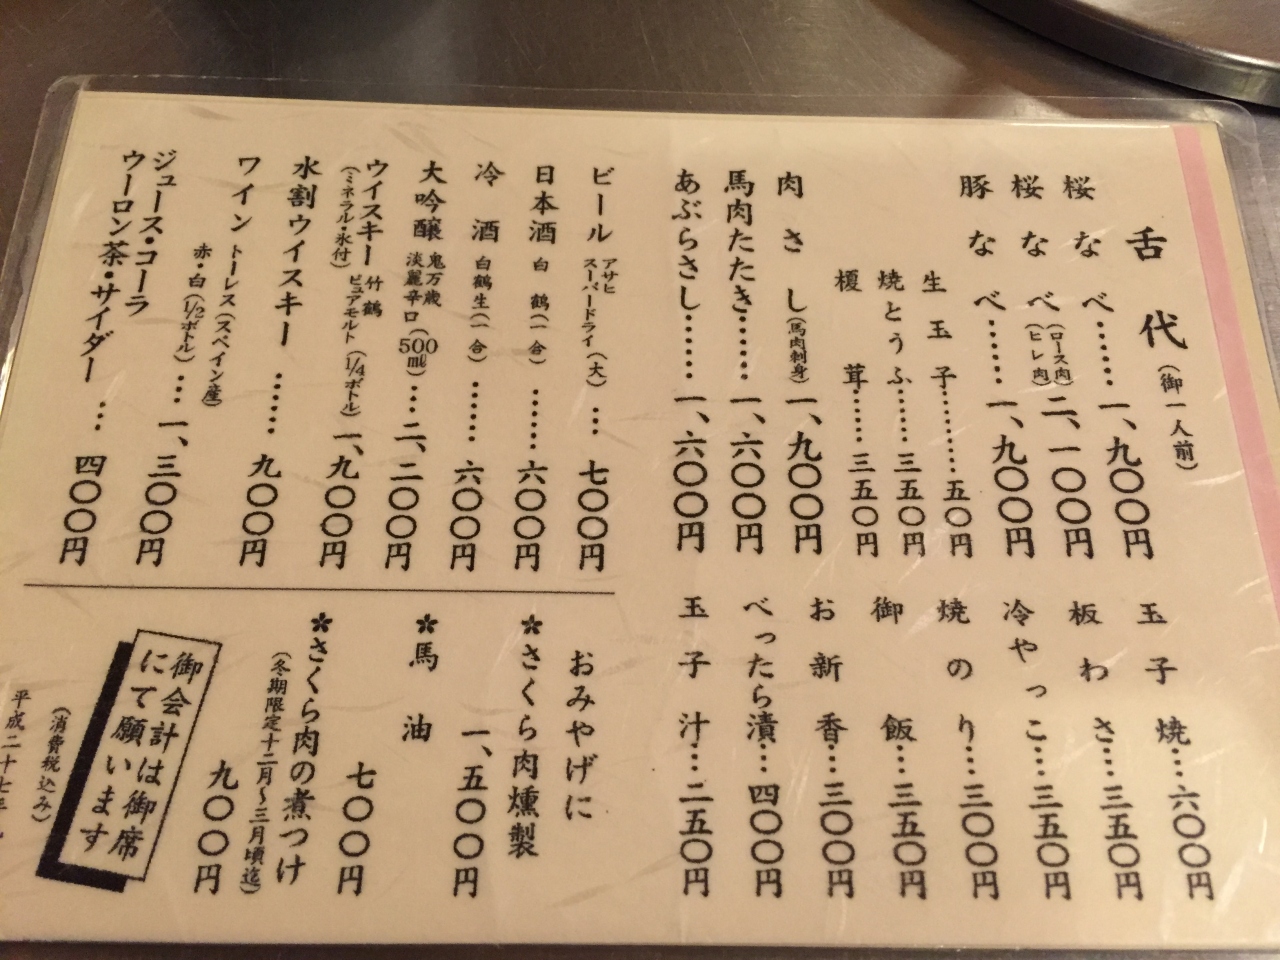 舌代（御一人前）
桜なべ……一、九〇〇円
桜なべ（ロース肉）（ヒレ肉）二、一〇〇円
豚なべ……一、九〇〇円
生玉子………五〇円
焼とうふ……三五〇円
榎茸……三五〇円
肉さし（馬肉刺身）一、九〇〇円
馬肉たたき……一、六〇〇円
あぶらさし……一、六〇〇円
玉子焼…六〇〇円
板わさ…三五〇円
冷やっこ…三五〇円
焼のり…三〇〇円
御飯…三五〇円
お新香…三〇〇円
べったら漬…四〇〇円
玉子汁…二五〇円
ビール アサヒスーパードライ（大）…七〇〇円
日本酒 白鶴（一合）……六〇〇円
冷酒 白鶴生（一合）……六〇〇円
大吟醸 鬼万歳 淡麗辛口（500㎖）…二、二〇〇円
ウイスキー 竹鶴ピュアモルト（1/4ボトル）一、九〇〇円
（ミネラル・氷付）
水割ウイスキー……九〇〇円
ワイン トーレス（スペイン産）
赤・白（1/2ボトル）…一、三〇〇円
ジュース・コーラ
ウーロン茶・サイダー…四〇〇円
おみやげに
＊さくら肉燻製
一、五〇〇円
＊馬油
七〇〇円
＊さくら肉の煮つけ
（冬期限定十二月〜三月頃迄）
九〇〇円
御会計は御席
にて願います
（消費税込み）
平成二十七年